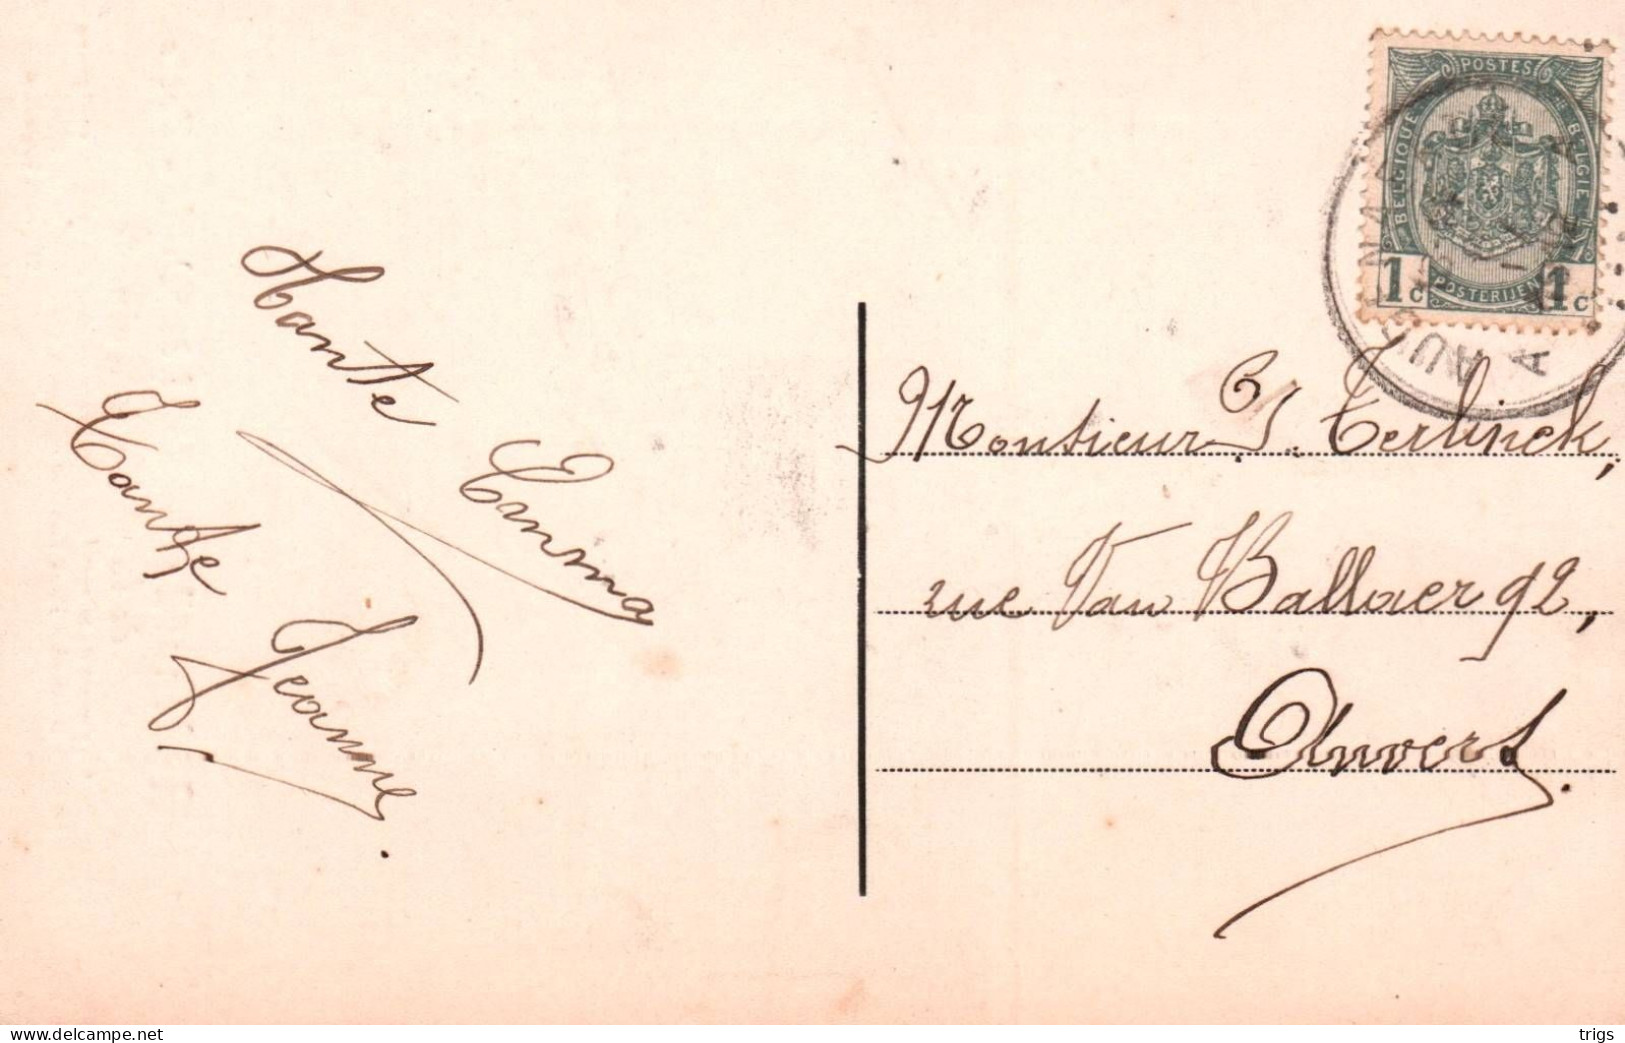 Tante Emma
Tante Jeanne.
POSTES
BELGIQUE
BELGIE
POSTERIJEN
1c 1c
Monsieur G. Terlinck,
rue Van Ballaer 92,
Anvers.
www.delcampe.net
trigs